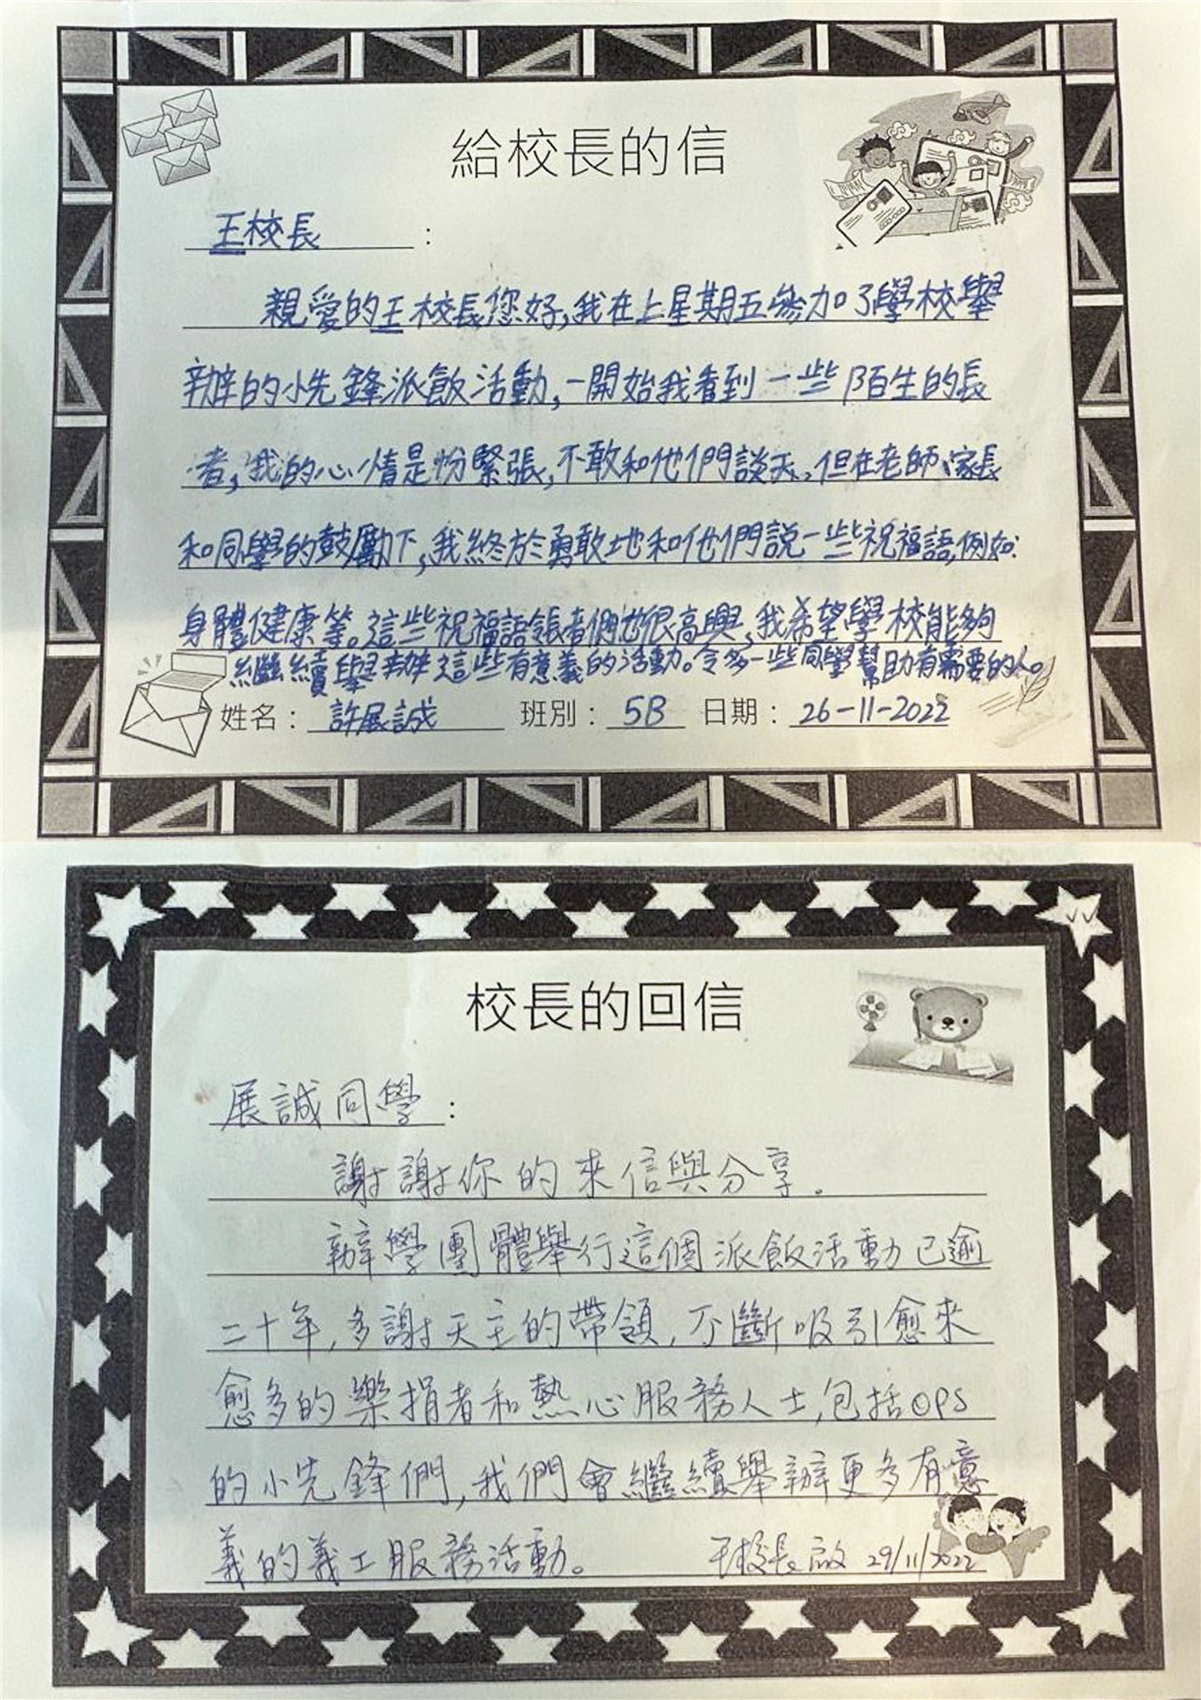 給校長的信
王校長：
親愛的王校長您好,我在上星期五參加了學校舉
辦的小先鋒派飯活動,一開始我看到一些陌生的長
者,我的心情是份緊張,不敢和他們談天,但在老師、家長
和同學的鼓勵下,我終於勇敢地和他們說一些祝福語,例如:
身體健康等。這些祝福語長者們也很高興,我希望學校能夠
繼續舉辦這些有意義的活動。令多一些同學幫助有需要的人。
姓名：許展誠 班別：5B 日期：26-11-2022
校長的回信
展誠同學：
謝謝你的來信與分享。
辦學團體舉行這個派飯活動已逾
二十年,多謝天主的帶領,不斷吸引愈來
愈多的樂捐者和熱心服務人士,包括OPS
的小先鋒們,我們會繼續舉辦更多有意
義的義工服務活動。 王校長啟 29/11/2022